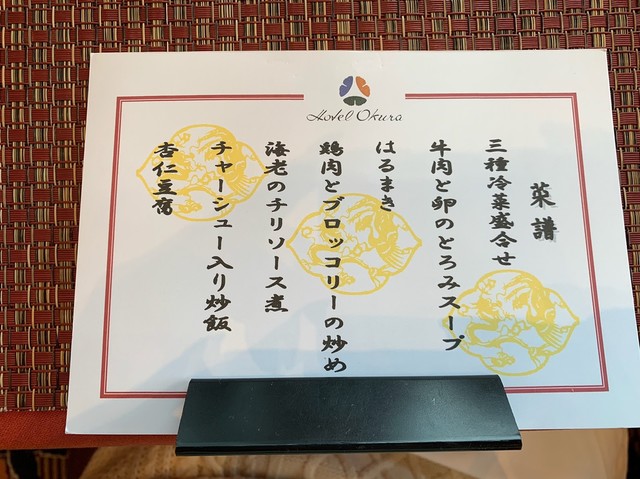 Hotel Okura
菜譜
三種冷菜盛合せ
牛肉と卵のとろみスープ
はるまき
鶏肉とブロッコリーの炒め
海老のチリソース煮
チャーシュー入り炒飯
杏仁豆腐